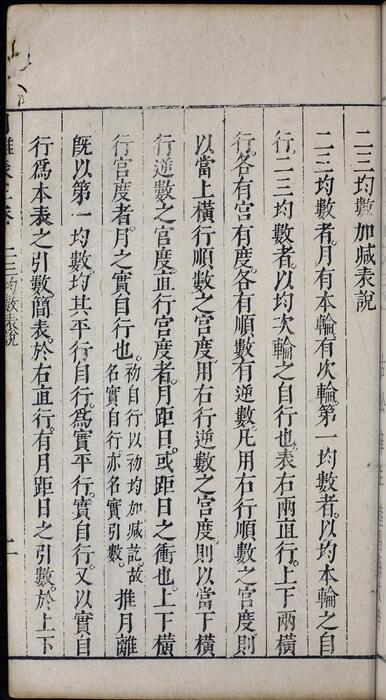 二三均數加減表說
二三均數者月有本輪有次輪第一均數者以均本輪之自
行二三均數者以均次輪之自行也表右兩直行上下兩橫
行各有宮有度各有順數有逆數凡用右行順數之宮度則
以當上橫行順數之宮度用右行逆數之宮度則以當下橫
行逆數之宮度直行宮度者月距日或距日之衝也上下橫
行宮度者月之實自行也
初自行以初均加減訖故
名實自行亦名實引數
推月離
既以第一均數均其平行自行爲實平行實自行又以實自
行爲本表之引數簡表於右直行有月距日之引數於上下
二三均數表說
一